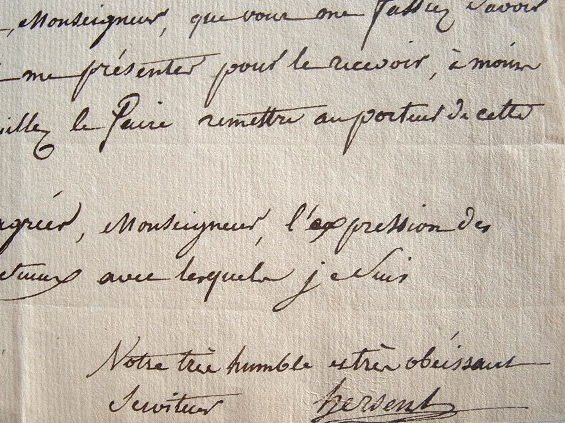 , Monseigneur, que vous me fassiez savoir
me présenter pour le recevoir, à moins
illez le faire remettre au porteur de cette
agréer, Monseigneur, l'expression des
ctueux avec lesquels je suis
Votre très humble et très obéissant
Serviteur hersent